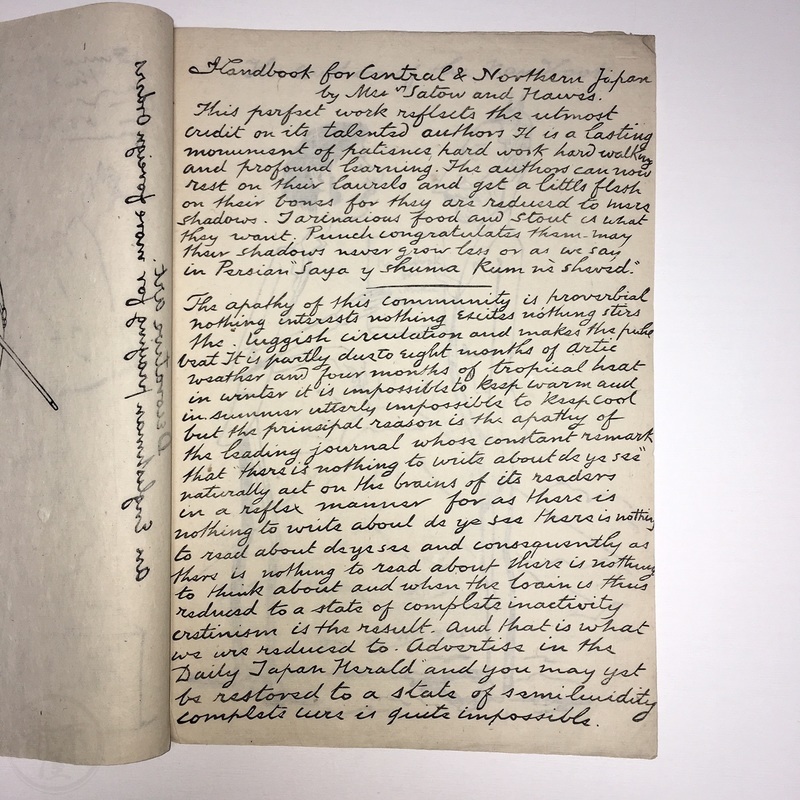 Handbook for Central & Northern Japan
by Mess rs Satow and Hawes.
This perfect work reflects the utmost
credit on its talented authors It is a lasting
monument of patience hard work hard walking
and profound learning. The authors can now
rest on their laurels and get a little flesh
on their bones for they are reduced to mere
shadows. Farinacious food and stout is what
they want. Punch congratulates them - may
their shadows never grow less or as we say
in Persian "Saya y shuma Kum ne sheved."
The apathy of this community is proverbial
nothing interests nothing excites nothing stirs
the sluggish circulation and makes the pulse
beat It is partly due to eight months of Artic
weather and four months of tropical heat
in winter it is impossible to keep warm and
in summer utterly impossible to keep cool
but the principal reason is the apathy of
the leading journal whose constant remark
"that there is nothing to write about de ye see"
naturally act on the brains of its readers
in a reflex manner for as there is
nothing to write about de ye see there is nothing
to read about de ye see and consequently as
there is nothing to read about there is nothing
to think about and when the brain is thus
reduced to a state of complete inactivity
cretinism is the result. And that is what
we are reduced to. Advertise in the
Daily Japan Herald and you may yet
be restored to a state of semi lucidity
complete cure is quite impossible.
An Englishman praying for more foreign
Decorative Art